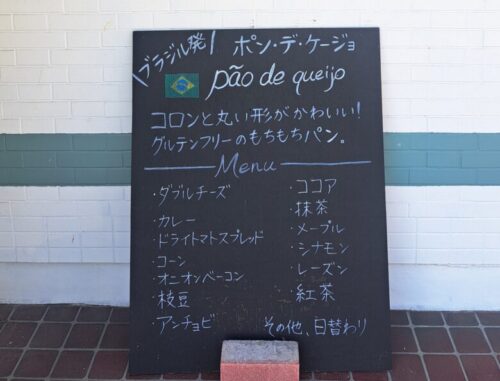 ブラジル発！ ポン・デ・ケージョ
pão de queijo
コロンと丸い形がかわいい！
グルテンフリーのもちもちパン。
Menu
・ダブルチーズ
・カレー
・ドライトマトスプレッド
・コーン
・オニオンベーコン
・枝豆
・アンチョビ
・ココア
・抹茶
・メープル
・シナモン
・レーズン
・紅茶
その他、日替わり